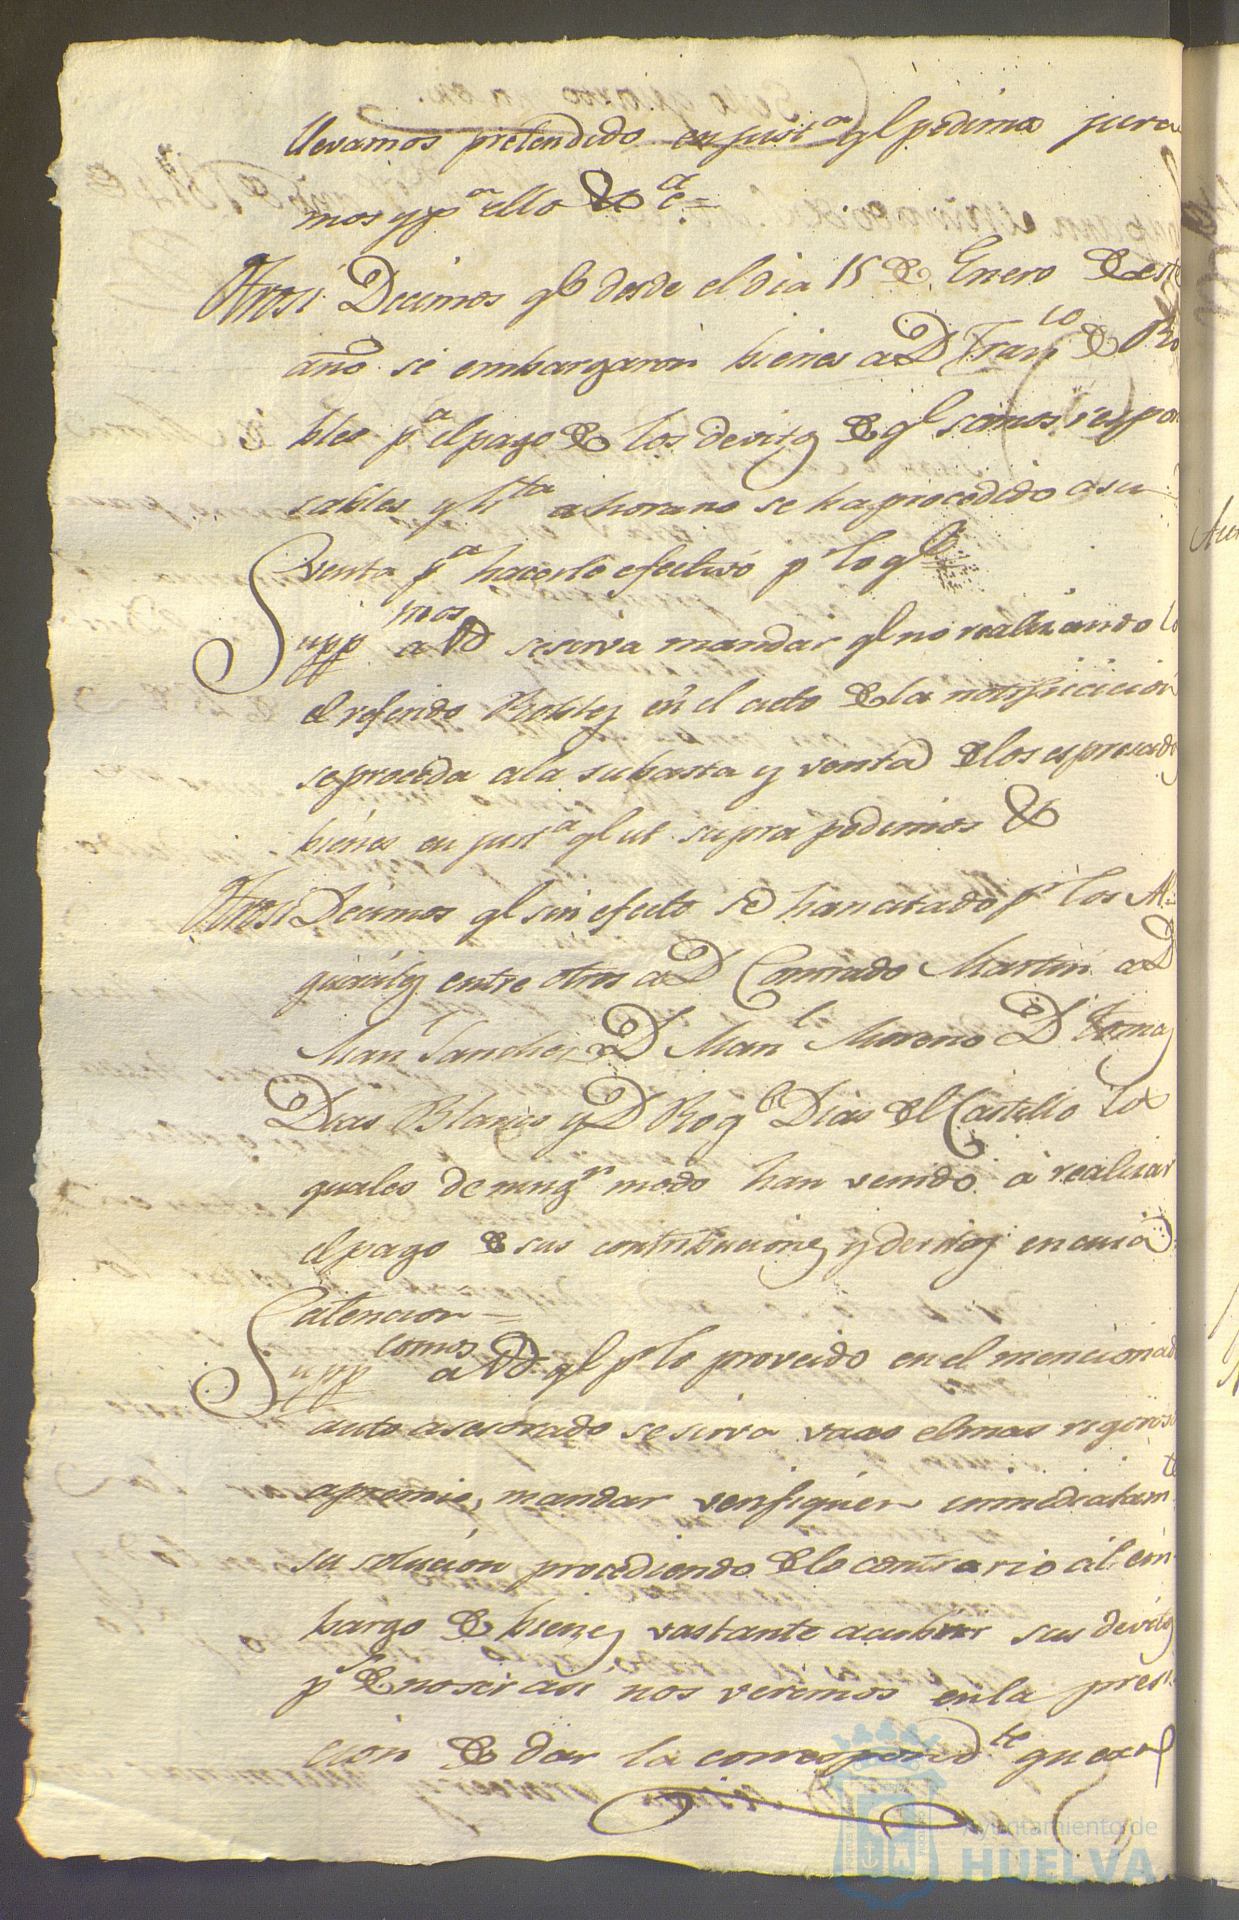 llevamos pretendido en just.ª q.e pedimos jura
mos y p.ª ello &c.ª =
Otrosi Decimos q.e desde el dia 15 de Enero de este
año se embargaron bienes a D Fran.co de Ro
bles p.ª el pago de los devitos de q.e somos respon
sables y h.ta ahora no se ha procedido a su
venta p.ª hacerlo efectivo p.r lo q.e
Supp.mos a Vd se sirva mandar q.e no realizando lo
el referido Robles en el acto de la notificicion
se proceda a la subasta y venta de los espresados
bienes en just.ª q.e ut supra pedimos &
Otrosi Decimos q.e sin efecto se han citado p.r los Al
guaciles entre otros a D Conrado Martin a D
Man.l Sanchez a D Man.l Moreno D Tomas
Dias Blanco y D Roq.e Dias del Castillo los
quales de ning.n modo han venido á realizar
el pago de sus contribuciones y devitos en cuia
atencion =
Supp.comos a Vd. q.e p.r lo proveido en el mencionado
auto asesorado se sirva vaxo el mas rigoroso
apremio, mandar verifiquen inmediatam.te
su solucion procediendo de lo contrario al em
bargo de bienes vastante a cubrir sus devitos
p.s de no ser asi nos veremos en la preci
cion de dar la correspond.te quexa
Ayuntamiento de
HUELVA